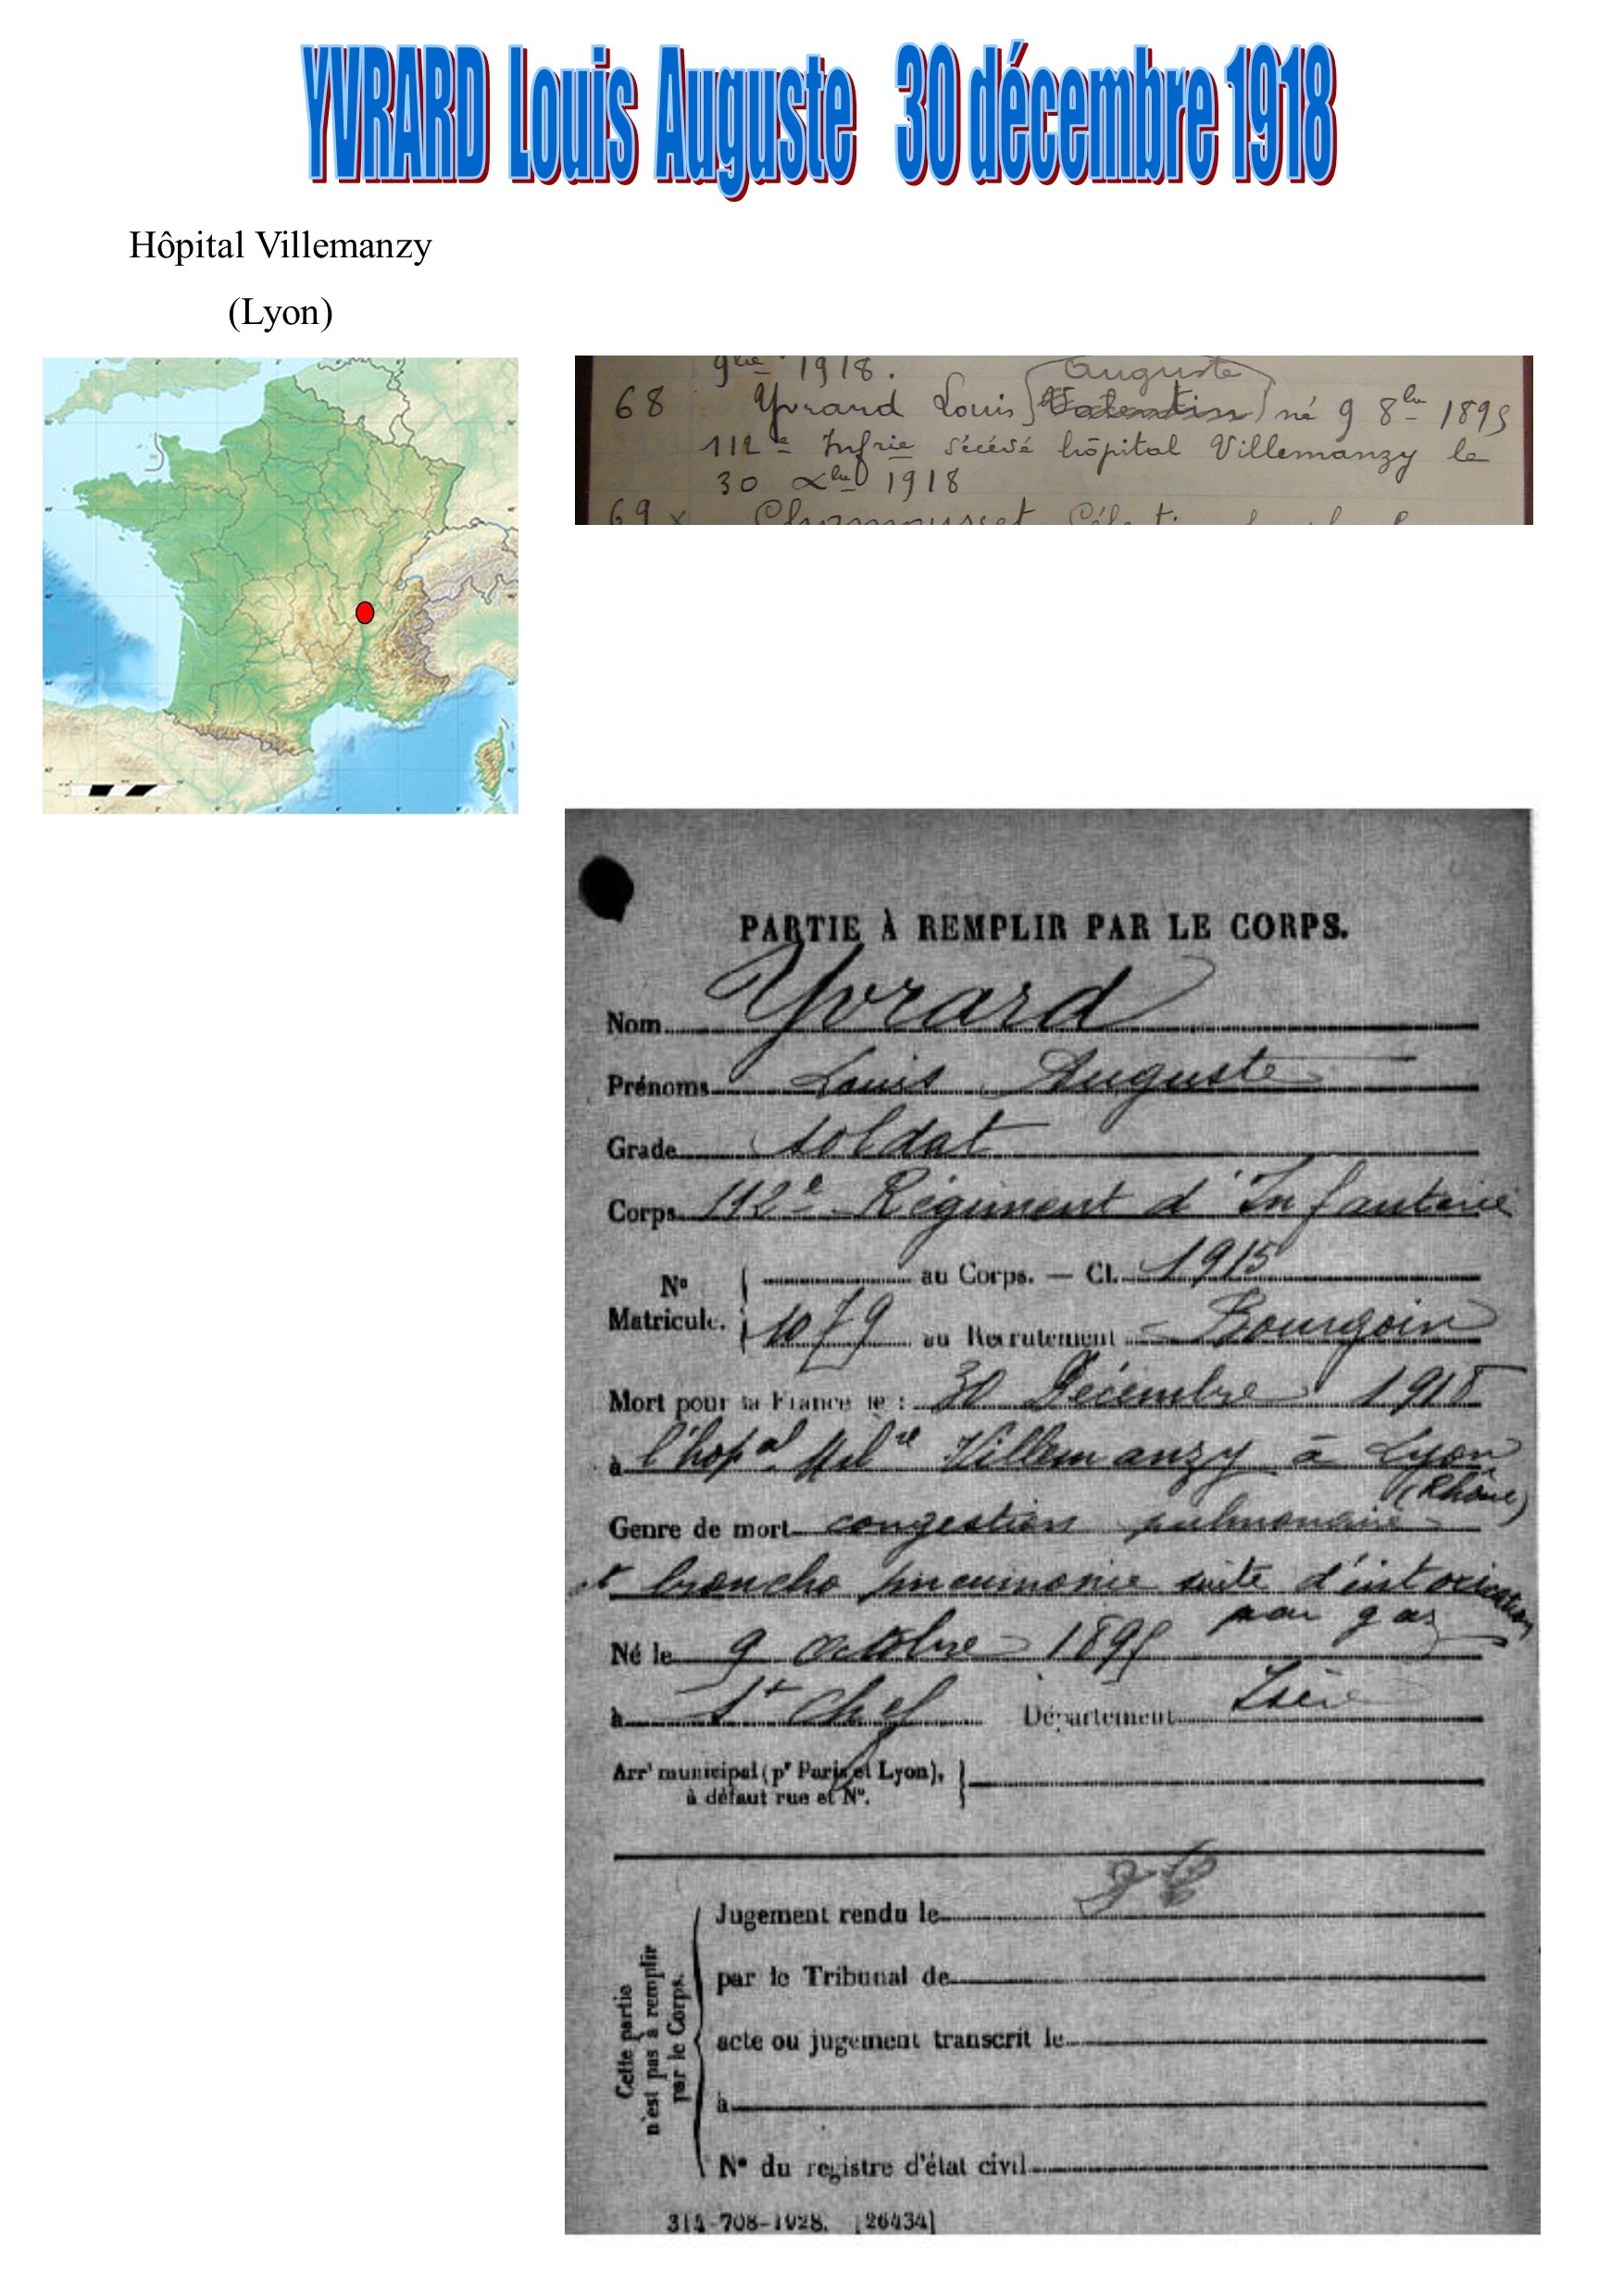 YVRARD Louis Auguste 30 décembre 1918
Hôpital Villemanzy
(Lyon)
9bre 1918.
Auguste
68 Yvrard Louis (Valentin) né 9 8bre 1895
112e Infrie décédé hôpital Villemanzy le
30 Xbre 1918
69 x
PARTIE À REMPLIR PAR LE CORPS.
Nom Yvrard
Prénoms Louis Auguste
Grade soldat
Corps 112e Régiment d'Infanterie
No Matricule. { au Corps. — Cl. 1915
1079 au Recrutement Bourgoin
Mort pour la France le : 30 Décembre 1918
à l'hopal Milre Villemanzy à Lyon
(Rhône)
Genre de mort congestion pulmonaire
et broncho pneumonie suite d'intoxication
par gaz
Né le 9 octobre 1895
à St Chef Département Isère
Arrt municipal (pr Paris et Lyon), }
à défaut rue et No.
Cette partie
n'est pas à remplir
par le Corps.
Jugement rendu le
par le Tribunal de
acte ou jugement transcrit le
à
No du registre d'état civil
314-708-1928. [26434]